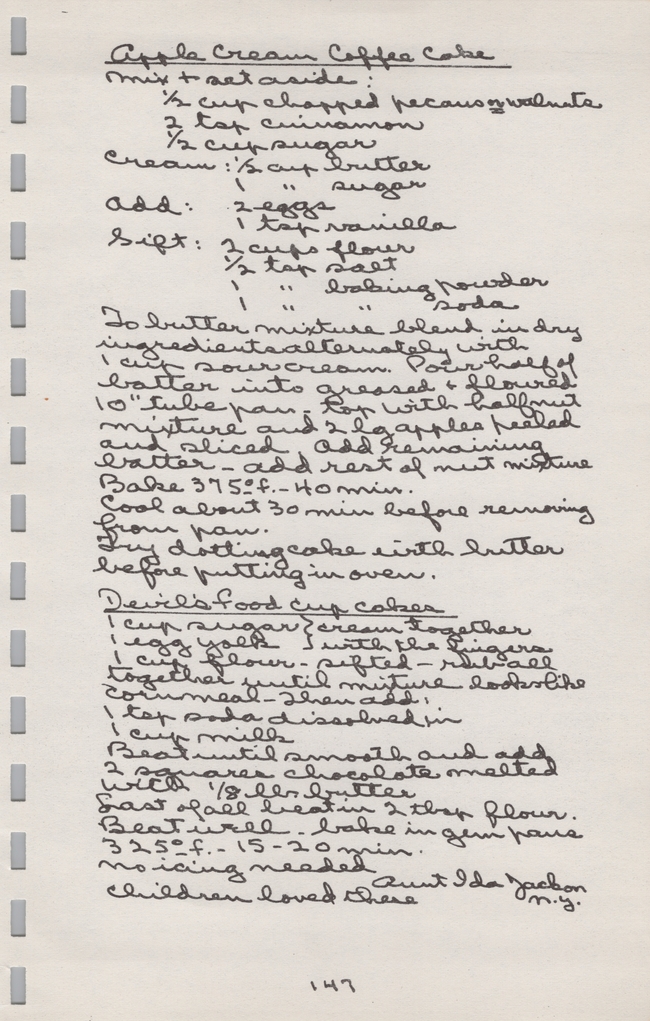 Apple Cream Coffee Cake
Mix + set aside:
1/2 cup chopped pecans or walnuts
2 tsp cinnamon
1/2 cup sugar
Cream: 1/2 cup butter
1 " sugar
Add: 2 eggs
1 tsp vanilla
Sift: 2 cups flour
1/2 tsp salt
1 " baking powder
1 " " soda
To butter mixture blend in dry
ingredients alternately with
1 cup sour cream. Pour half of
batter into greased + floured
10" tube pan - top with half nut
mixture and 2 lg apples peeled
and sliced. Add remaining
batter - add rest of nut mixture
Bake 375° f. - 40 min.
Cool about 30 min before removing
from pan.
Try dotting cake with butter
before putting in oven.
Devil's Food Cup Cakes
1 cup sugar } cream together
1 egg yolk } with the fingers
1 cup flour - sifted - rub all
together until mixture looks like
cornmeal - then add:
1 tsp soda dissolved in
1 cup milk
Beat until smooth and add
2 squares chocolate melted
with 1/8 lb butter
Last of all beat in 2 tbsp flour.
Beat well - bake in gem pans
325° f. - 15 - 20 min.
no icing needed
children loved these
Aunt Ida Jackson
N.Y.
147